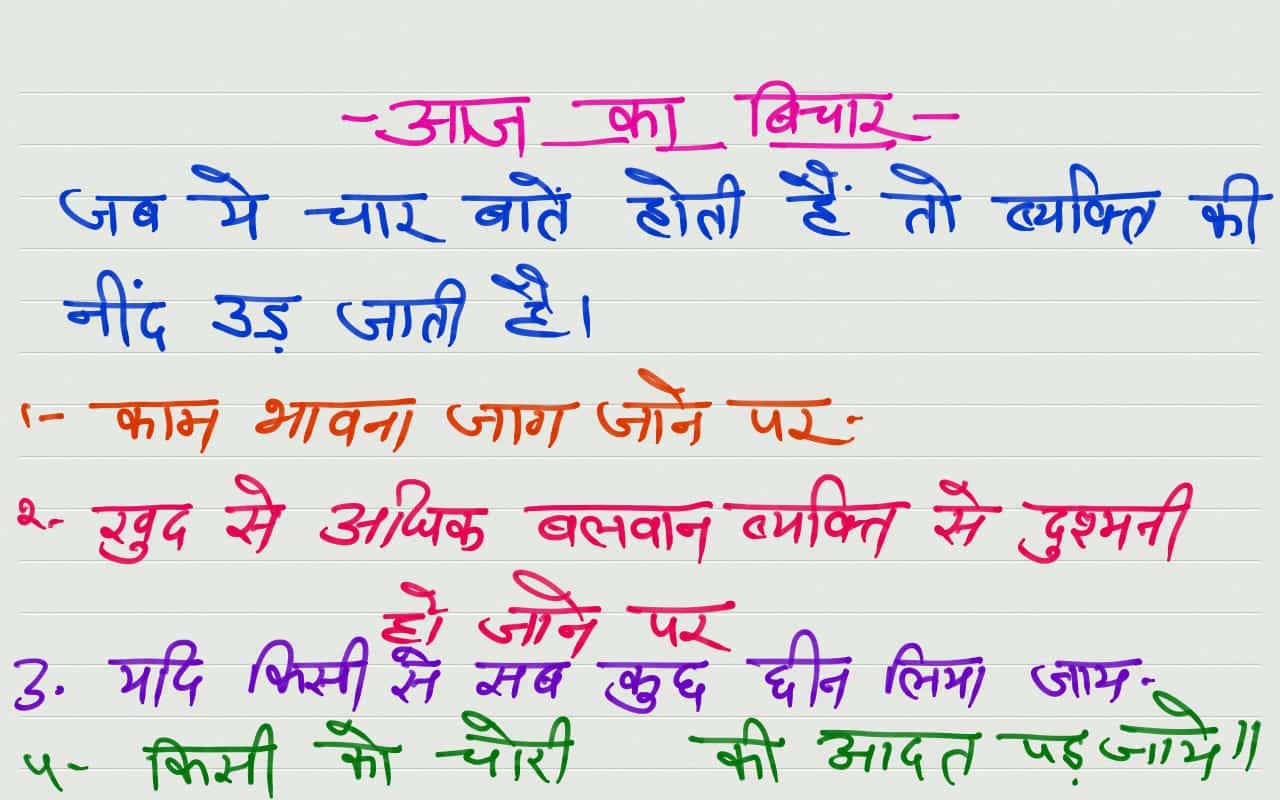 -आज का बिचार-
जब ये चार बातें होती हैं तो व्यक्ति की
नींद उड़ जाती है।
१- काम भावना जाग जाने पर-
२- खुद से अधिक बलवान व्यक्ति से दुश्मनी
हो जाने पर
3. यदि किसी से सब कुछ छीन लिया जाय-
५- किसी को चोरी की आदत पड़ जाये॥